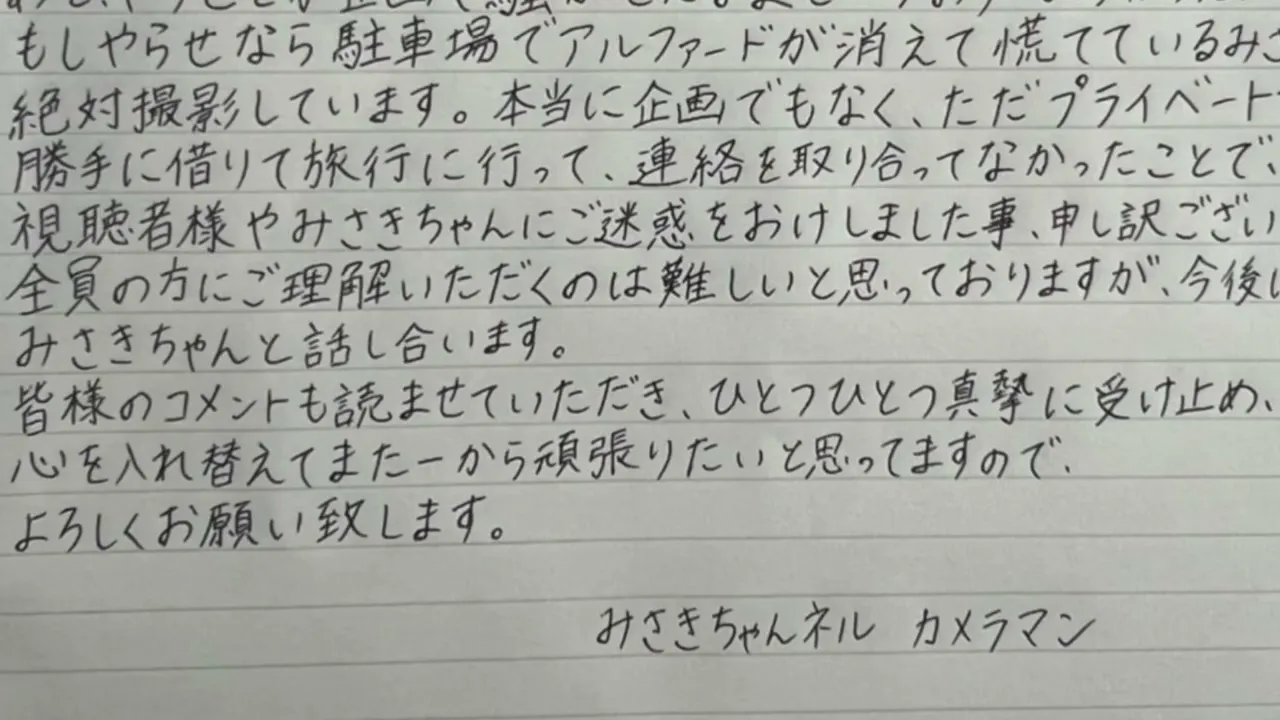 もしやらせなら駐車場でアルファードが消えて慌てているみさ
絶対撮影しています。本当に企画でもなく、ただプライベートで
勝手に借りて旅行に行って、連絡を取り合ってなかったことで、
視聴者様やみさきちゃんにご迷惑をおけしました事、申し訳ござい
全員の方にご理解いただくのは難しいと思っておりますが、今後は
みさきちゃんと話し合います。
皆様のコメントも読ませていただき、ひとつひとつ真摯に受け止め、
心を入れ替えてまた一から頑張りたいと思ってますので、
よろしくお願い致します。
みさきちゃんネル カメラマン